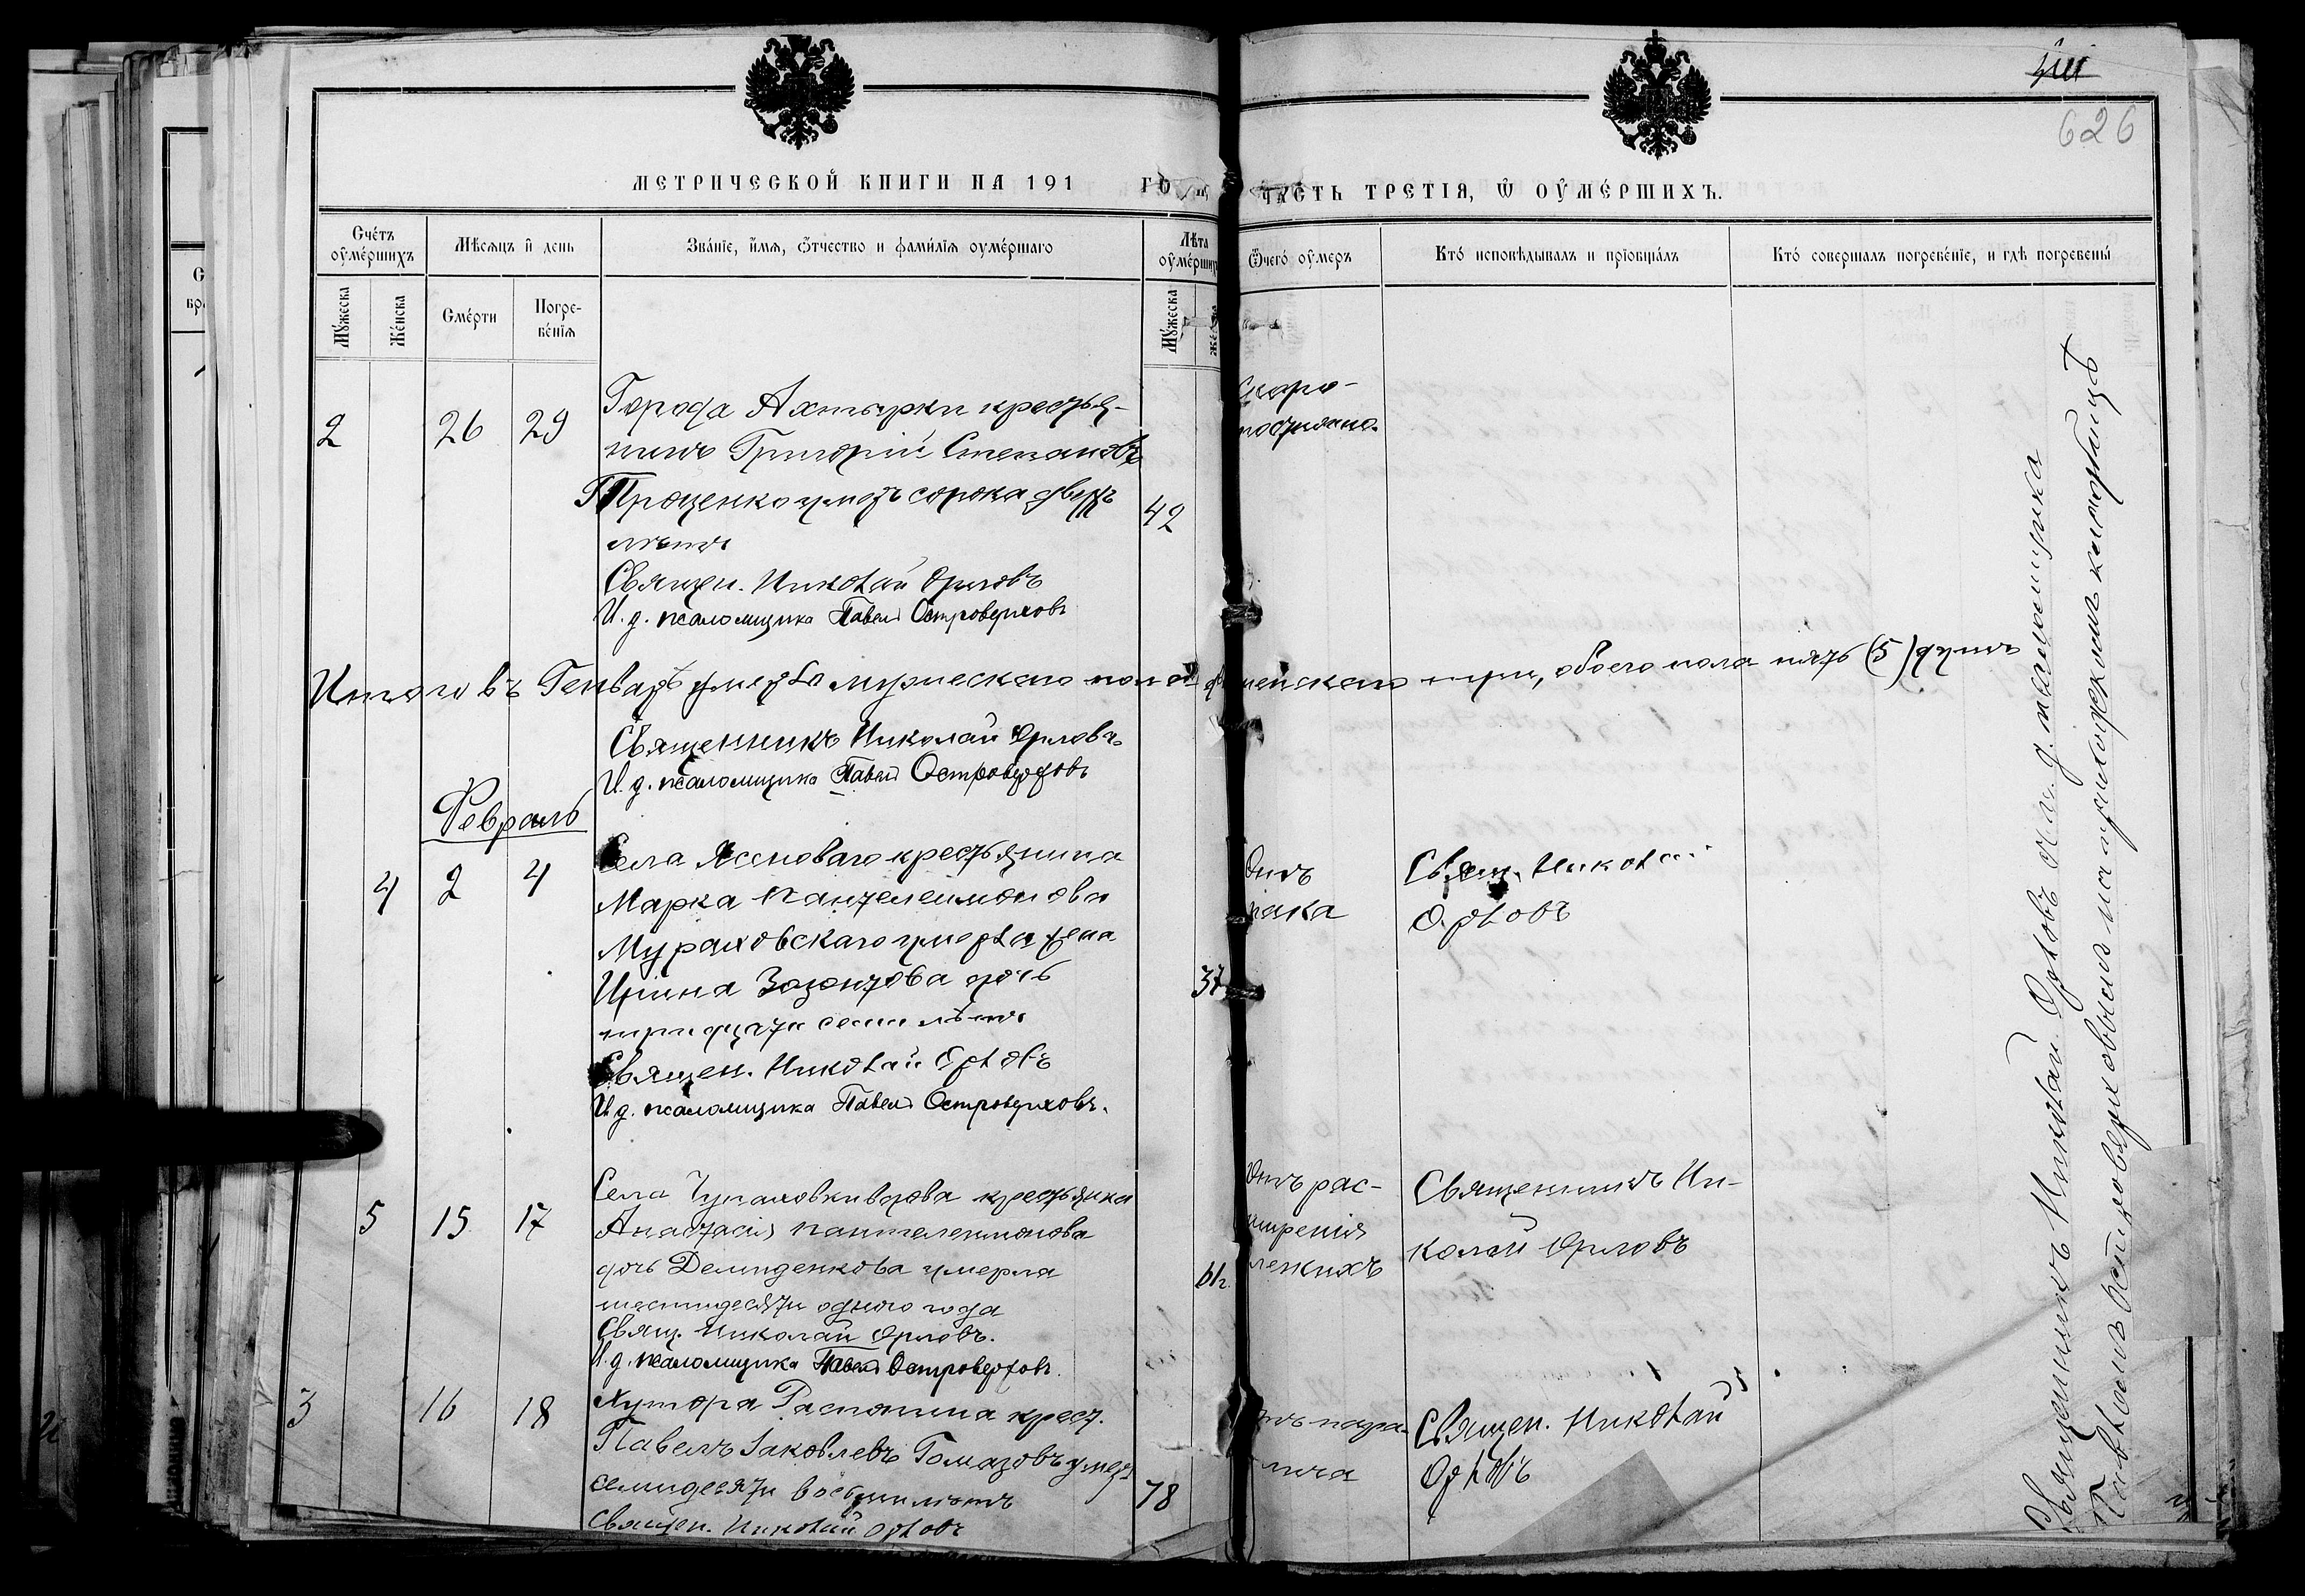 626
МЕТРИЧЕСКОЙ КНИГИ НА 191 ГО
ЧАСТЬ ТРЕТІЯ, Ѿ ОУМЕРШИХЪ.
Счетъ оумершихъ
Мѣсяцъ и день
Званіе, имя, отчество и фамилія оумершаго
Лѣта оумерших
Ѿчего оумеръ
Кто исповѣдывалъ и пріобщалъ
Кто совершалъ погребеніе, и гдѣ погребены
Мужеска
Женска
Смерти
Погре-
бенія
Мужеска
2 26 29
Города Ахтырки крестья-
нинъ Григорій Степановъ
Проценко умеръ сорока двухъ
лѣтъ
42
Скоро-
постижно.
Священ. Николай Орловъ
И. д. псаломщика Павелъ Островерховъ
Итого въ Генварѣ умерло мужеского пола женскаго три, обоего пола пять (5) душъ
Священникъ Николай Орловъ
И. д. псаломщика Павелъ Островерховъ
Февраль
4 2 4
Села Ясеноваго крестьянина
Марка Пантелеимонова
Мураховскаго умерла жена
Ирина дочь
тридцати семи лѣтъ
37
Отъ
рака
Свящ. Николай
Орловъ
Священ. Николай Орловъ
И. д. псаломщика Павелъ Островерховъ.
5 15 17
Села Чупаховки вдова крестьянка
Анастасія Пантелеимонова
дочь Демиденкова умерла
шестидесяти одного года
61 г.
Отъ рас-
ширенія
легкихъ
Священникъ Ни-
колай Орловъ
Свящ. Николай Орловъ.
И. д. псаломщика Павелъ Островерховъ.
3 16 18
Хутора крест.
Павелъ Іаковлевъ умеръ
семидесяти восьми лѣтъ
78
Священ. Николай
Орловъ
Священ. Николай Орловъ
Священникъ Николай Орловъ съ и. д. псаломщика
Павломъ Островерховымъ на приходскомъ кладбищѣ